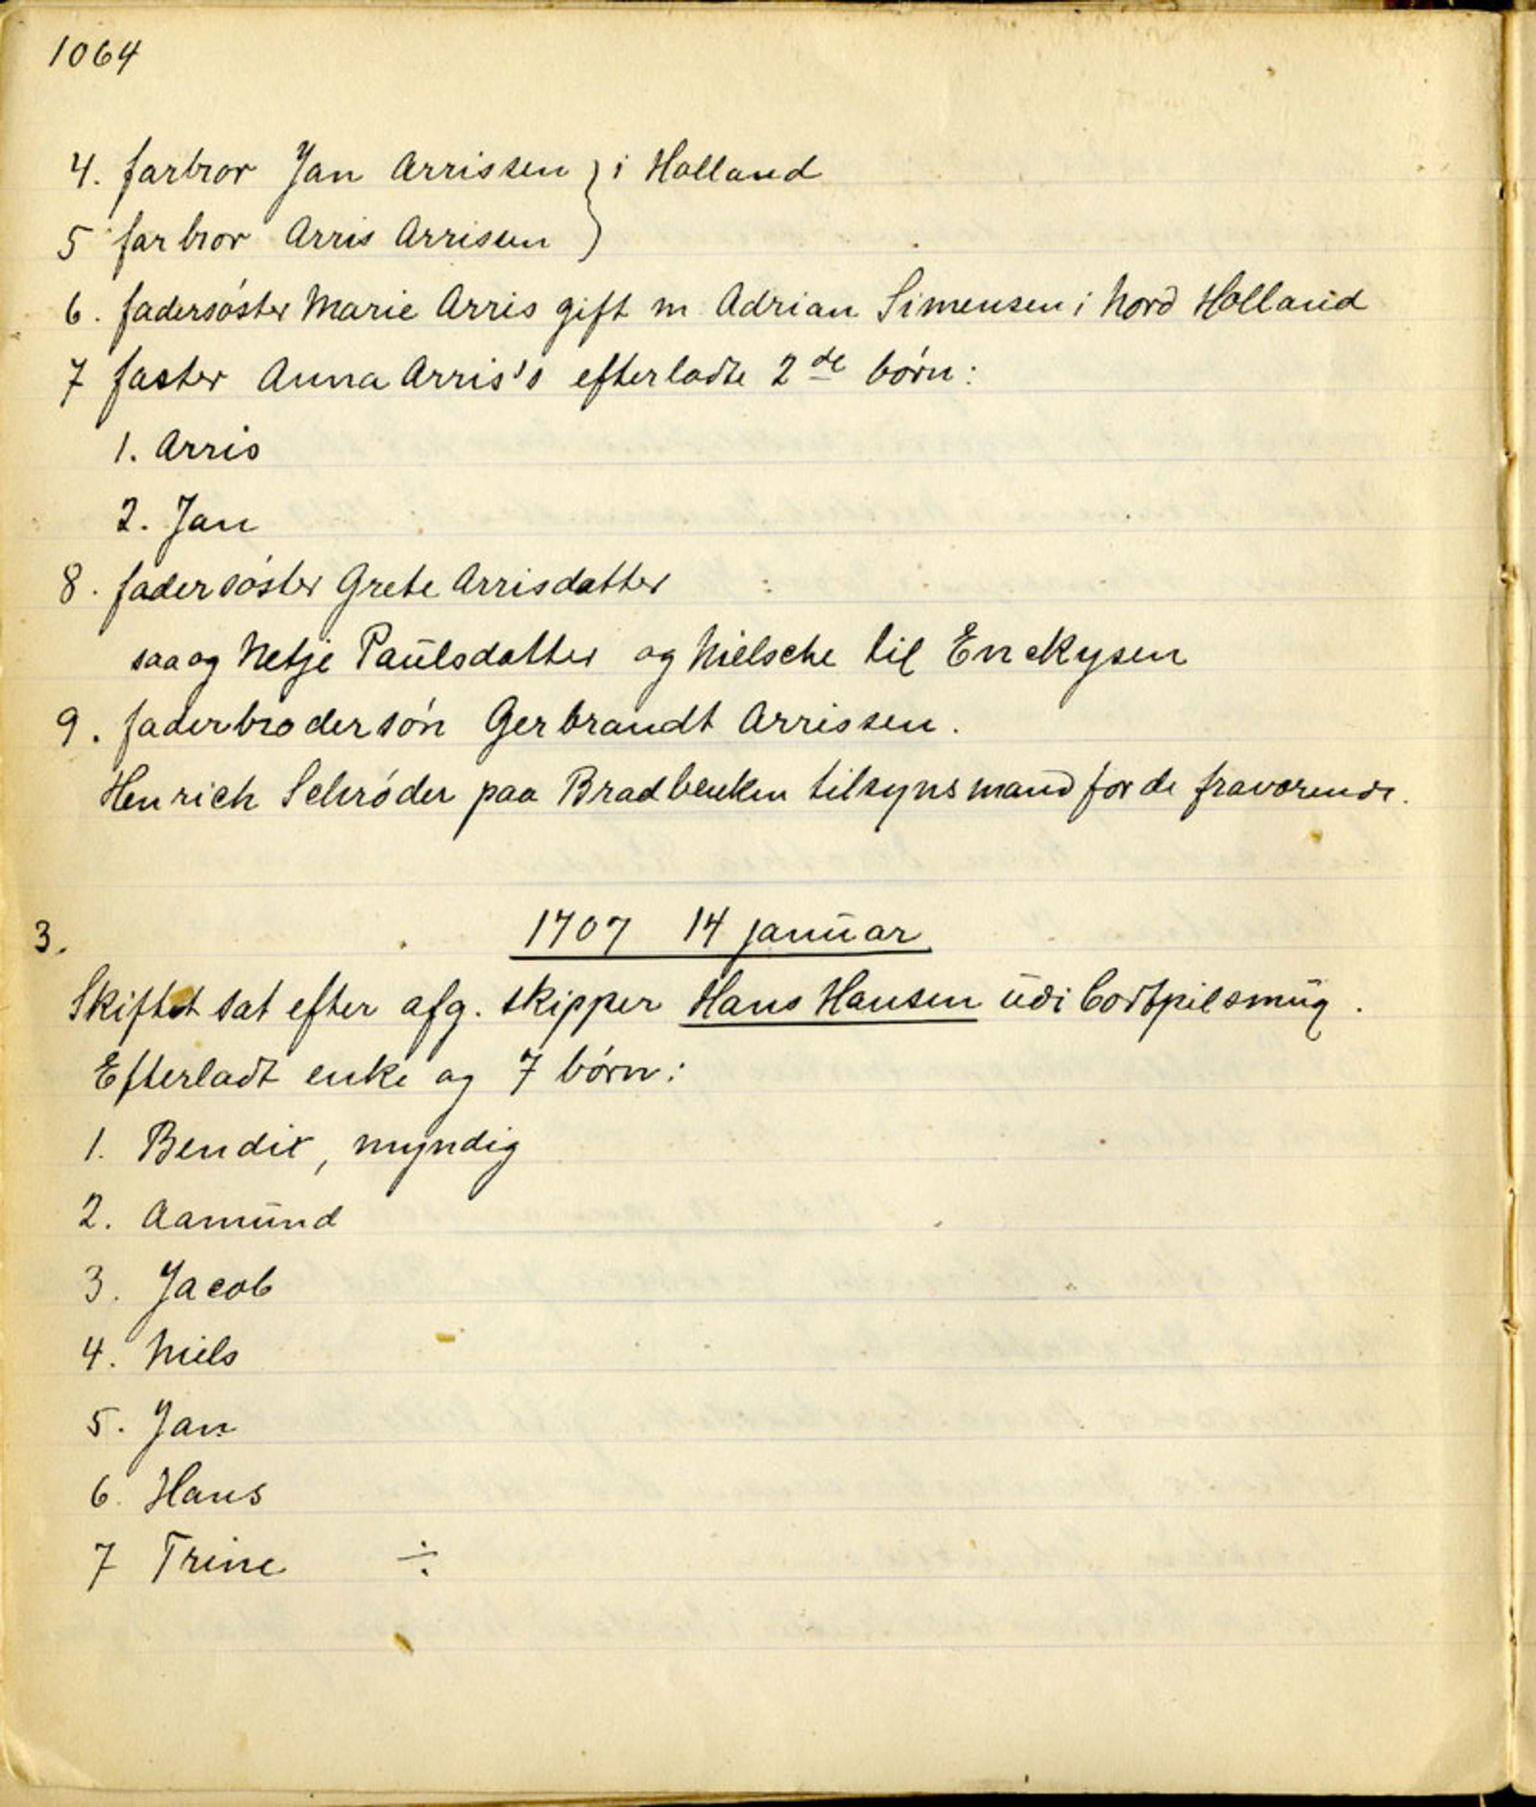 1064
4. farbror Jan Arrissen } i Holland
5 farbror Arris Arrisen
6. fadersøster Marie Arris gift m Adrian Simensen i Nord Holland
7 faster Anna Arris's efterladte 2de børn:
1. Arris
2. Jan
8. fadersøster Grete Arrisdatter
saa og Netje Paulsdatter og Nielsche til Enckysen
9. faderbrodersøn Gerbrandt Arrissen.
Henrich Schrøder paa Bradbenken tilsynsmand for de fraværende.
3. 1707 14 januar
Skiftet sat efter afg. skipper Hans Hansen udi Cortpilsmug.
Efterladt enke og 7 børn:
1. Bendix, myndig
2. Aamund
3. Jacob
4. Niels
5. Jan
6. Hans
7 Trine ÷